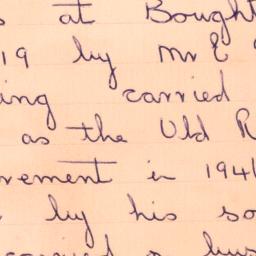 at Bought
19 by Mr E
ing carried
as the Old R
rement in 194
by his so